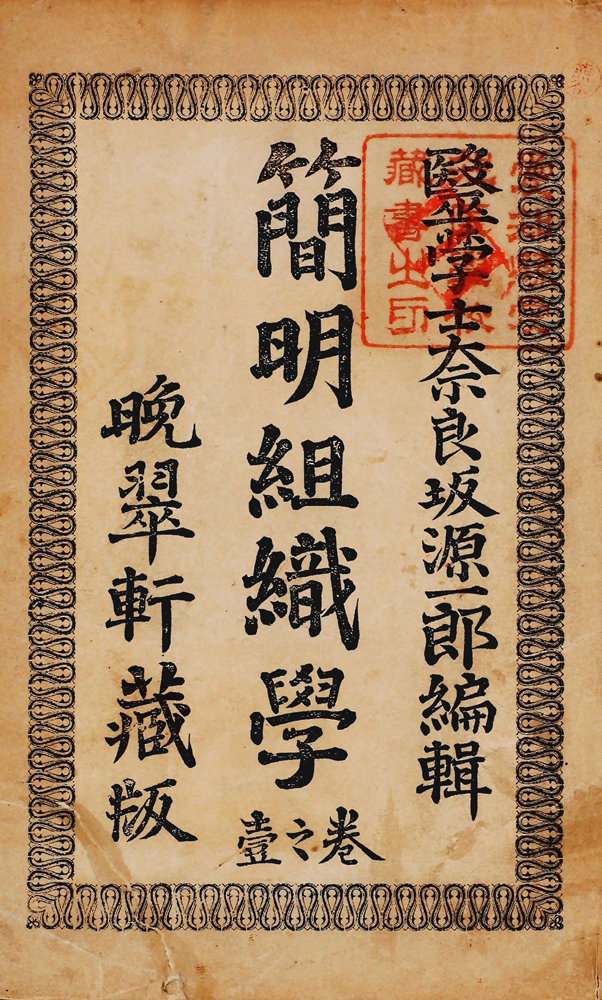 毉学士奈良坂源一郎編輯
簡明組織學
卷之壹
晩翠軒藏版
藏書之印